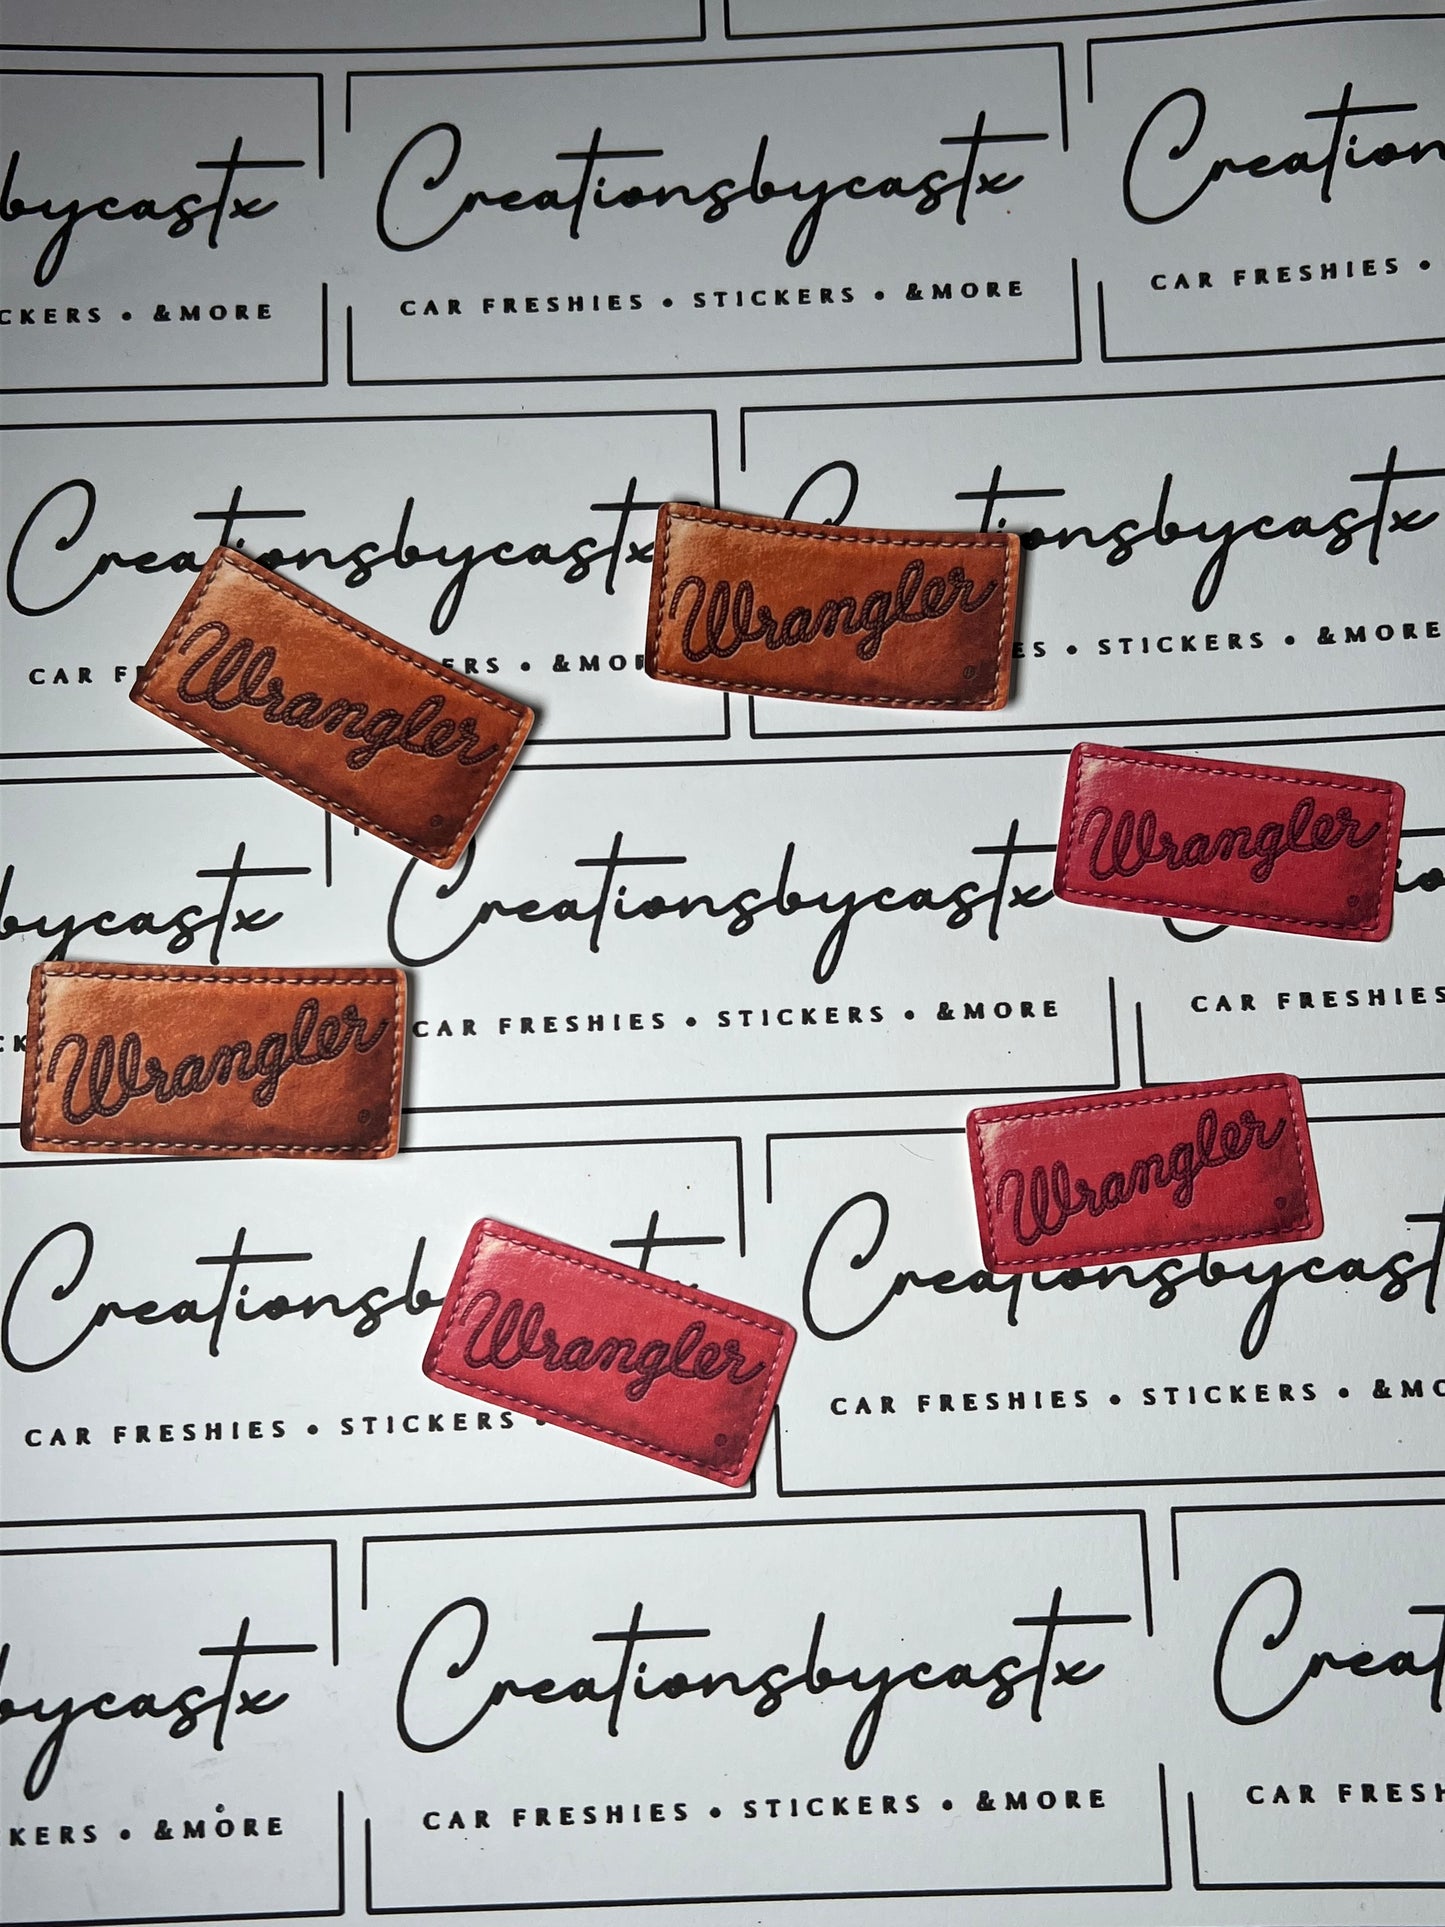 bycastx
Creationsbycastx
Creation
CKERS • &MORE
CAR FRESHIES • STICKERS • &MORE
CAR FRESHIES •
Creationsbycastx
tionsbycastx
CAR F
ERS • &MO
ES • STICKERS • &MORE
Wrangler
Wrangler
Wrangler
bycastx
Creationsbycastx
CAR FRESHIES • STICKERS • &MORE
CAR FRESHIES
Wrangler
Wrangler
Creationsb
Creationsbycast
Wrangler
CAR FRESHIES • STICKERS •
CAR FRESHIES • STICKERS • &MO
bycastx
Creationsbycastx
Creat
KERS • &MORE
CAR FRESHIES • STICKERS • &MORE
CAR FRESH